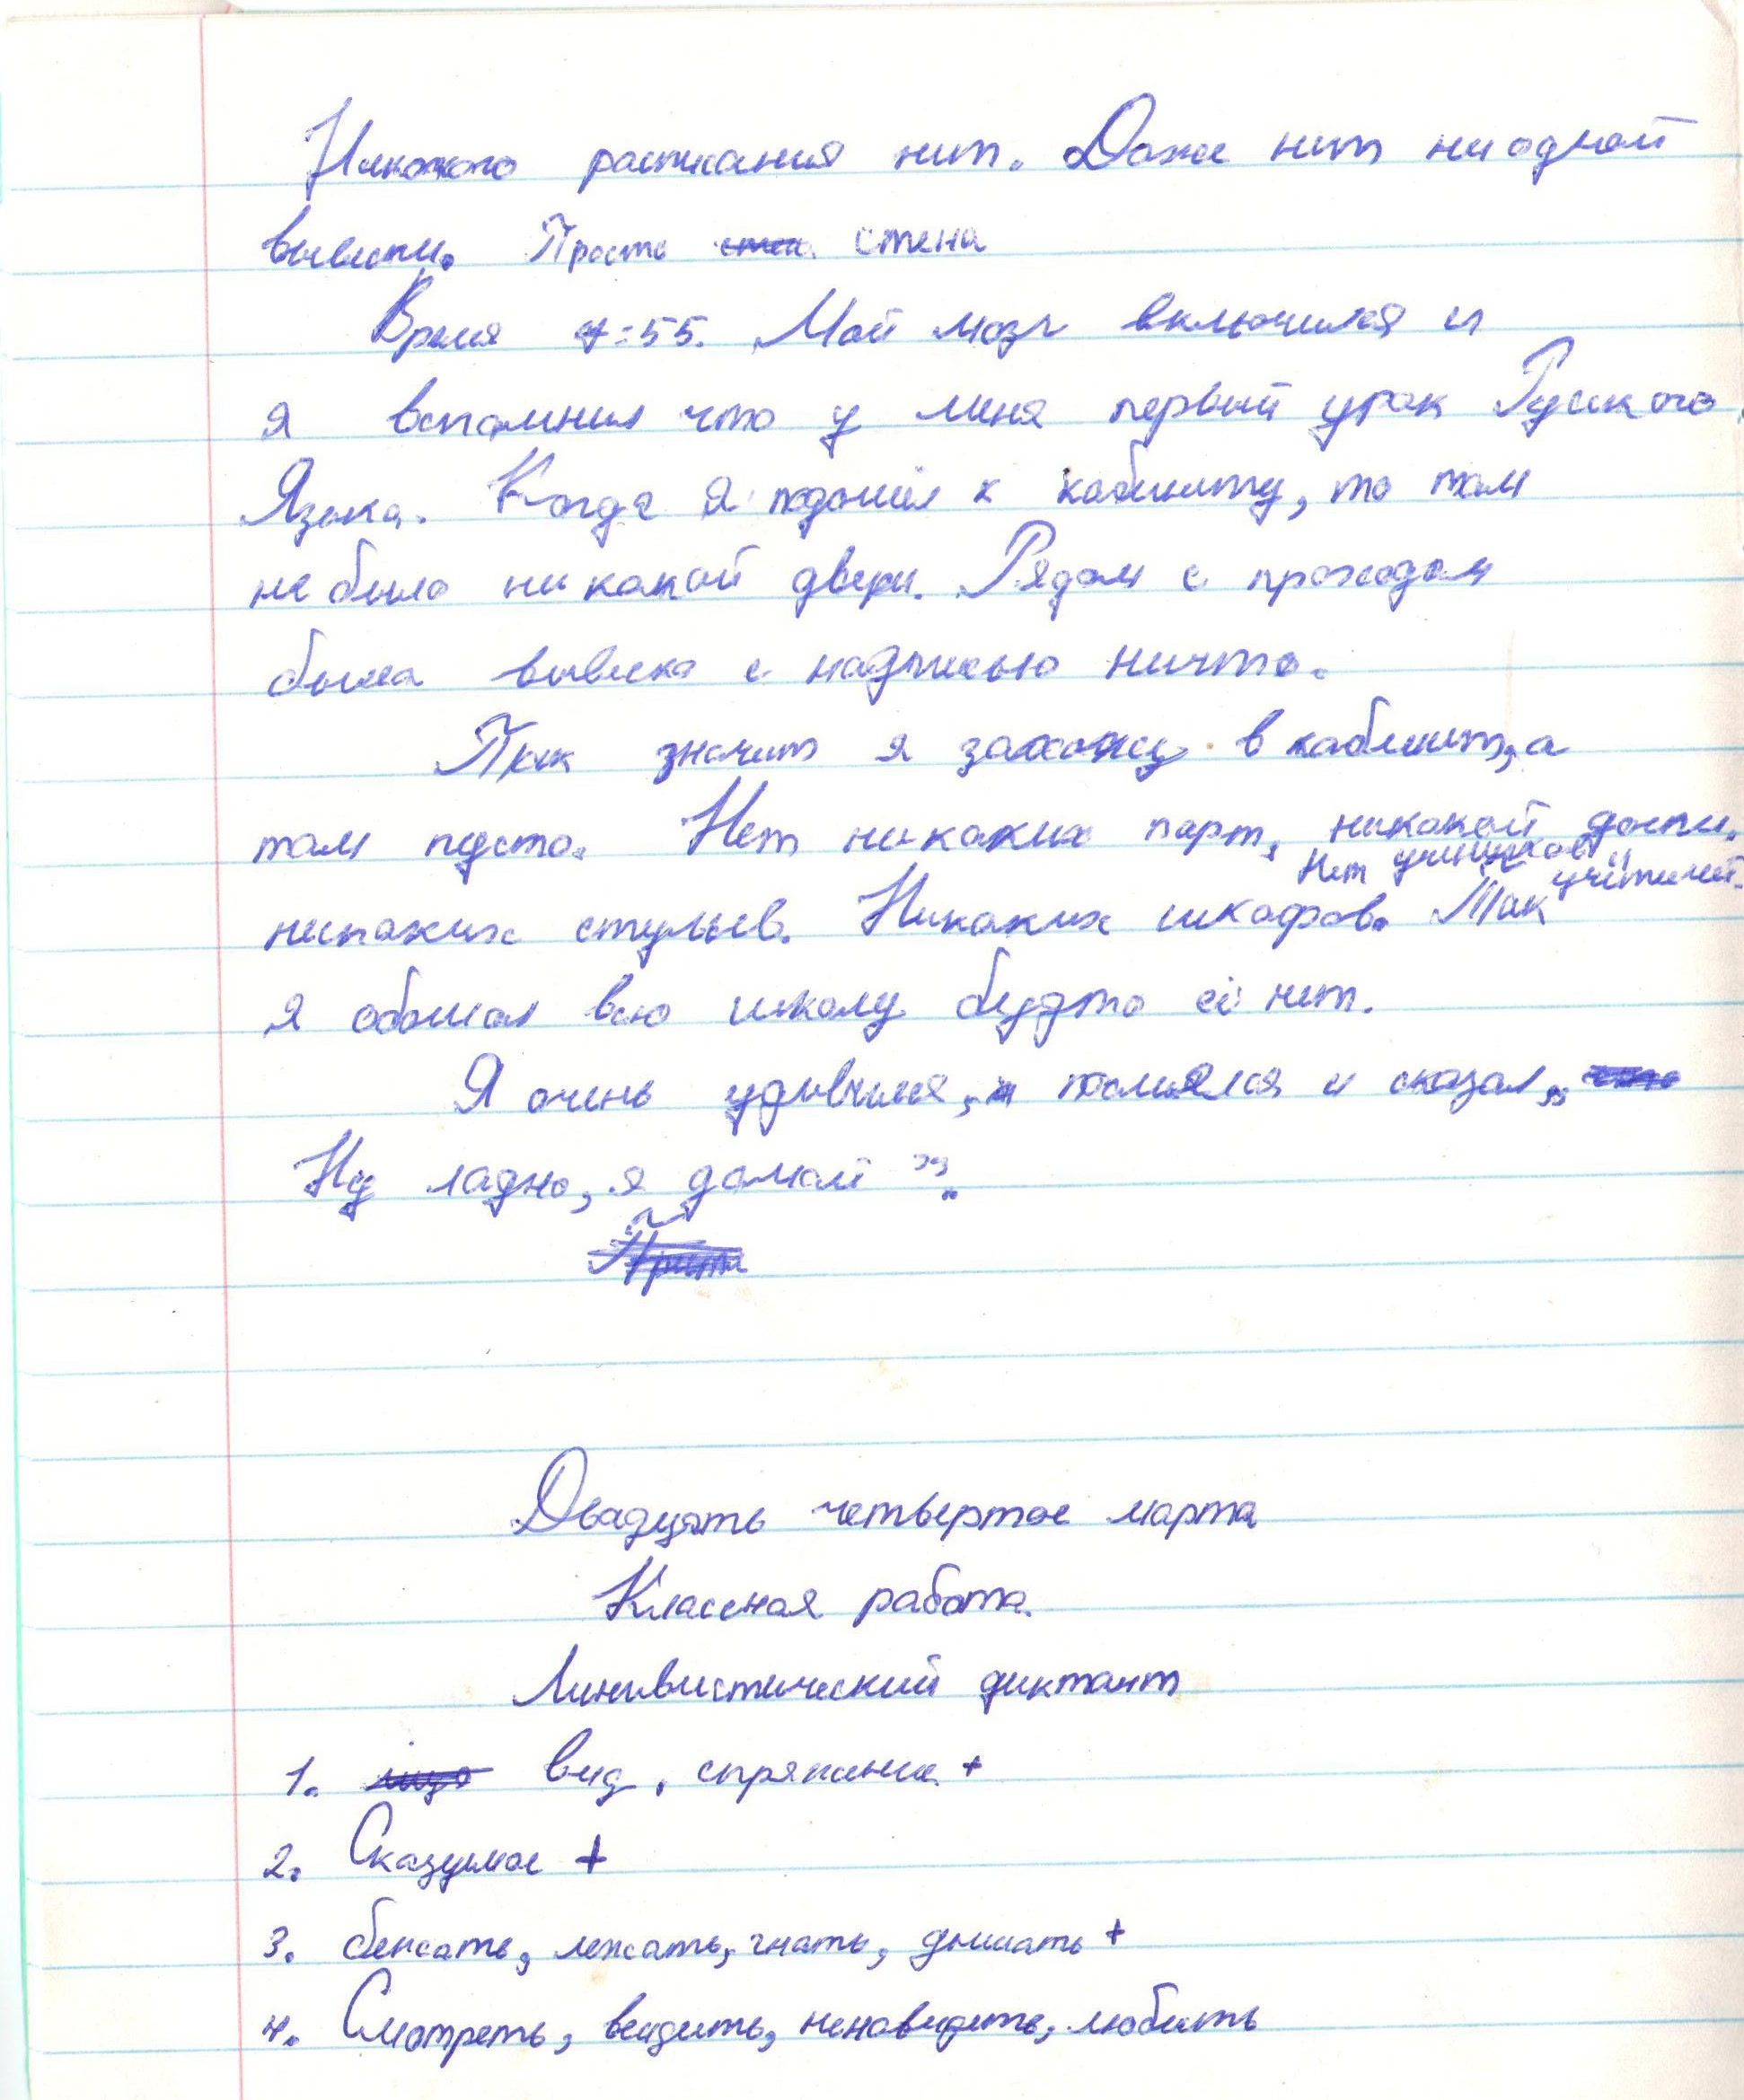 Никокого расписания нит. Даже нит ни одной
вывиски. Просто стена
Время 7:55. Мой мозг включился и
я вспомнил что у меня первый урок Руского
Языка. Когда я подошёл к кабиниту, то там
не было ни какой двери. Рядом с проходом
была вывеска с надписью ничто.
Так значит я захожу в кабинит, а
там пусто. Нет ни каких парт, никакой доски,
Нет учеников и учителей.
никаких стульев. Никаких шкафов. Так
я обошол всю школу будто её нит.
Я очень удивился, и сказал, „
Ну ладно, я домой ”.
Двадцать четвертое марта
Классная работа.
Лингвистический диктант
1. вид, спряжение +
2. Сказуемое +
3. бежать, лежать, гнать, дышать +
4. Смотреть, веидить, ненавидеть, любить